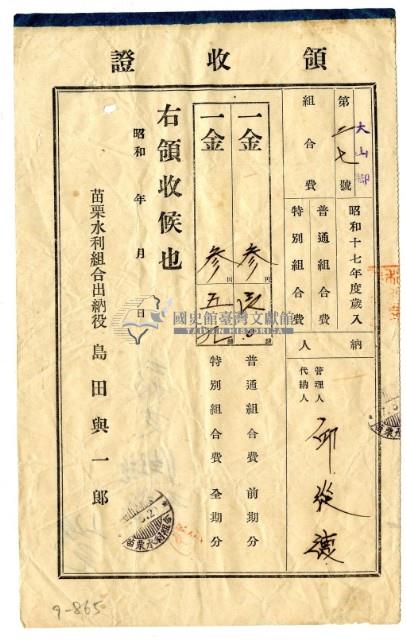 領收證
大山腳
第二七號
組合費
昭和十七年度歲入
普通組合費
特別組合費
納人
管理人
代納人
一金
參
円
普通組合費 前期分
一金
參
円
五
特別組合費 全期分
右領收候也
昭和 年 月 日
苗栗水利組合出納役 島田與一郎
國史館臺灣文獻館
TAIWAN HISTORICA
9-865